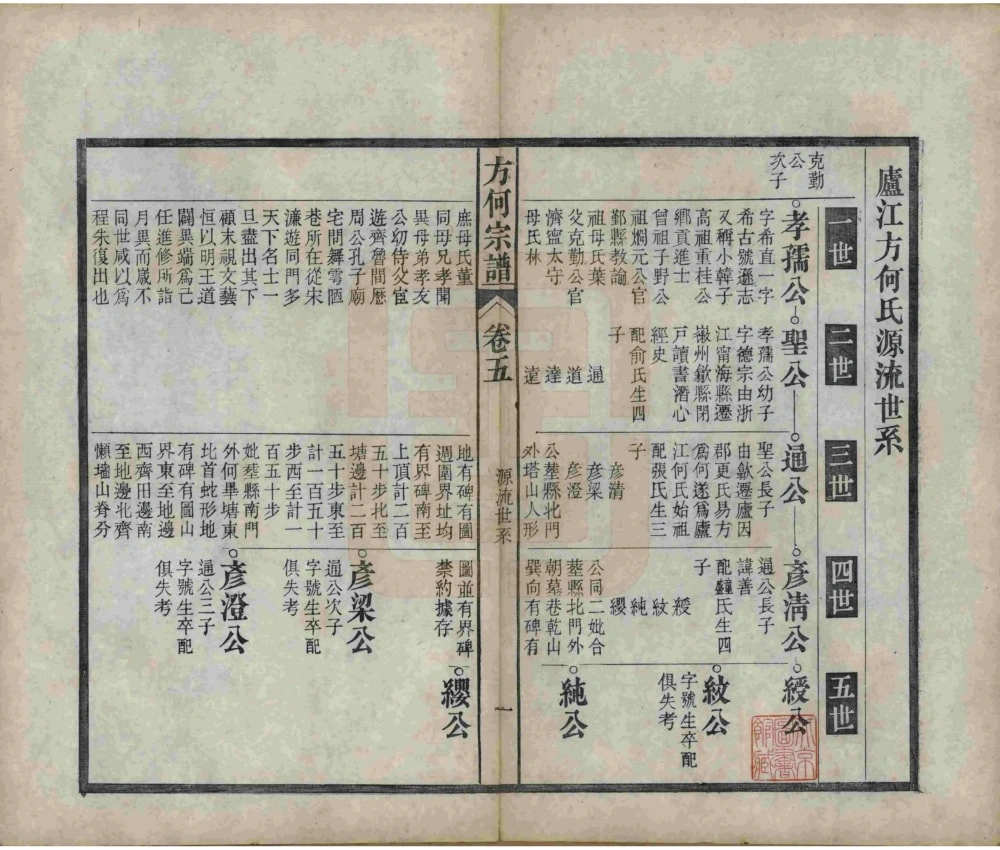 廬江方何氏源流世系
一世
二世
三世
四世
五世
克勤
公
次子
孝孺公
字希直一字
希古號遜志
又稱小韓子
高祖重桂公
鄉貢進士
曾祖子野公
祖炯元公官
鄞縣教諭
祖母氏葉
父克勤公官
濟寧太守
母氏林
聖公
孝孺公幼子
字德宗由浙
江甯海縣遷
徽州歙縣閉
戸讀書潛心
經史
配俞氏生四
子
通
道
達
達
通公
聖公長子
由歙遷廬因
郡更氏易方
爲何遂爲廬
江何氏始祖
配張氏生三
子
彥清
彥梁
彥澄
公塟縣北門
外塔山人形
彥清公
通公長子
諱善
配鍾氏生四
子
綬
紋
純
纓
公同二妣合
塟縣北門外
朝墓巷乾山
巽向有碑有
綬公
紋公
字號生卒配
俱失考
純公
方何宗譜
卷五
源流世系
一
庶母氏董
同母兄孝聞
異母弟孝友
公幼侍父宦
遊齊魯間歷
周公孔子廟
宅問舞雩陋
巷所在從宋
濂遊同門多
天下名士一
旦盡出其下
顧末視文藝
恒以明王道
闢異端爲己
任進修所詣
月異而歲不
同世咸以爲
程朱復出也
地有碑有圖
週圍界址均
有界碑南至
上頂計二百
五十步北至
塘邊計二百
五十步東至
計一百五十
步西至計一
百五十步
妣塟縣南門
外何畢塘東
北首蛇形地
有碑有圖山
界東至地邊
西齊田邊南
至地邊北齊
懶塘山脊分
圖並有界碑
禁約據存
彥梁公
通公次子
字號生卒配
俱失考
彥澄公
通公三子
字號生卒配
俱失考
纓公